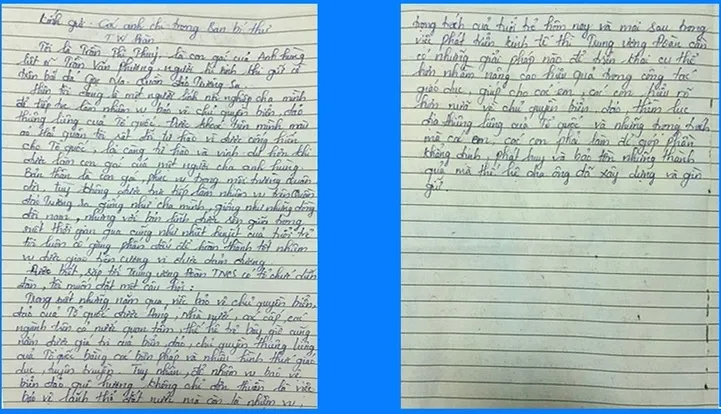 Kính gửi: Các anh chị trong Ban bí thư
T.W Đoàn
Tôi là Trần Thị Thuỷ, là con gái của Anh hùng
liệt sĩ Trần Văn Phương, người hi sinh khi giữ cờ
trên bãi đá Gạc Ma, Quần đảo Trường Sa.
tôi đang là một người lính nối nghiệp cha mình
để tiếp tục làm nhiệm vụ bảo vệ chủ quyền biển, đảo
thiêng liêng của Tổ quốc. Được khoác trên mình màu
áo Hải quân tôi rất đỗi tự hào vì được cống hiến
cho Tổ quốc, lại càng tự hào và vinh dự hơn khi
được làm con gái của một người cha anh hùng.
Bản thân là con gái phục vụ trong môi trường Quân
đội, tuy không được trực tiếp làm nhiệm vụ trên Quần
đảo Trường Sa giống như cha mình, giống như những đồng
đội nam, nhưng với bản lĩnh được rèn giũa trong
suốt thời gian qua cũng như nhiệt huyết của tuổi trẻ
tôi luôn cố gắng phấn đấu để hoàn thành tốt nhiệm
vụ được giao trên cương vị được đảm đương.
Được biết, sắp tới Trung ương Đoàn TNCS có tổ chức diễn
đàn, tôi muốn đặt một câu hỏi:
Trong suốt những năm qua, việc bảo vệ chủ quyền biển,
đảo của Tổ quốc được Đảng, Nhà nước, các cấp, các
ngành trên cả nước quan tâm, thế hệ trẻ bây giờ cũng
nắm được giá trị của biển đảo, chủ quyền thiêng liêng
của Tổ quốc bằng các biện pháp và nhiều hình thức giáo
dục, tuyên truyền. Tuy nhiên, để nhiệm vụ bảo vệ
biển đảo quê hương không chỉ đơn thuần là việc
bảo vệ lãnh thổ đất nước mà còn là nhiệm vụ,
trọng trách của tuổi trẻ hôm nay và mai sau trong
việc phát triển kinh tế thì Trung ương Đoàn cần
có những giải pháp nào để triển khai cụ thể
hơn nhằm nâng cao hiệu quả trong công tác
giáo dục, giúp cho các em, các con hiểu rõ
hơn nữa về chủ quyền biển, đảo, thềm lục
địa thiêng liêng của Tổ quốc và những trọng trách
mà các em, các con phải làm để góp phần
khẳng định, phát huy và bảo tồn những thành
quả mà thế hệ cha ông đã xây dựng và gìn
giữ.